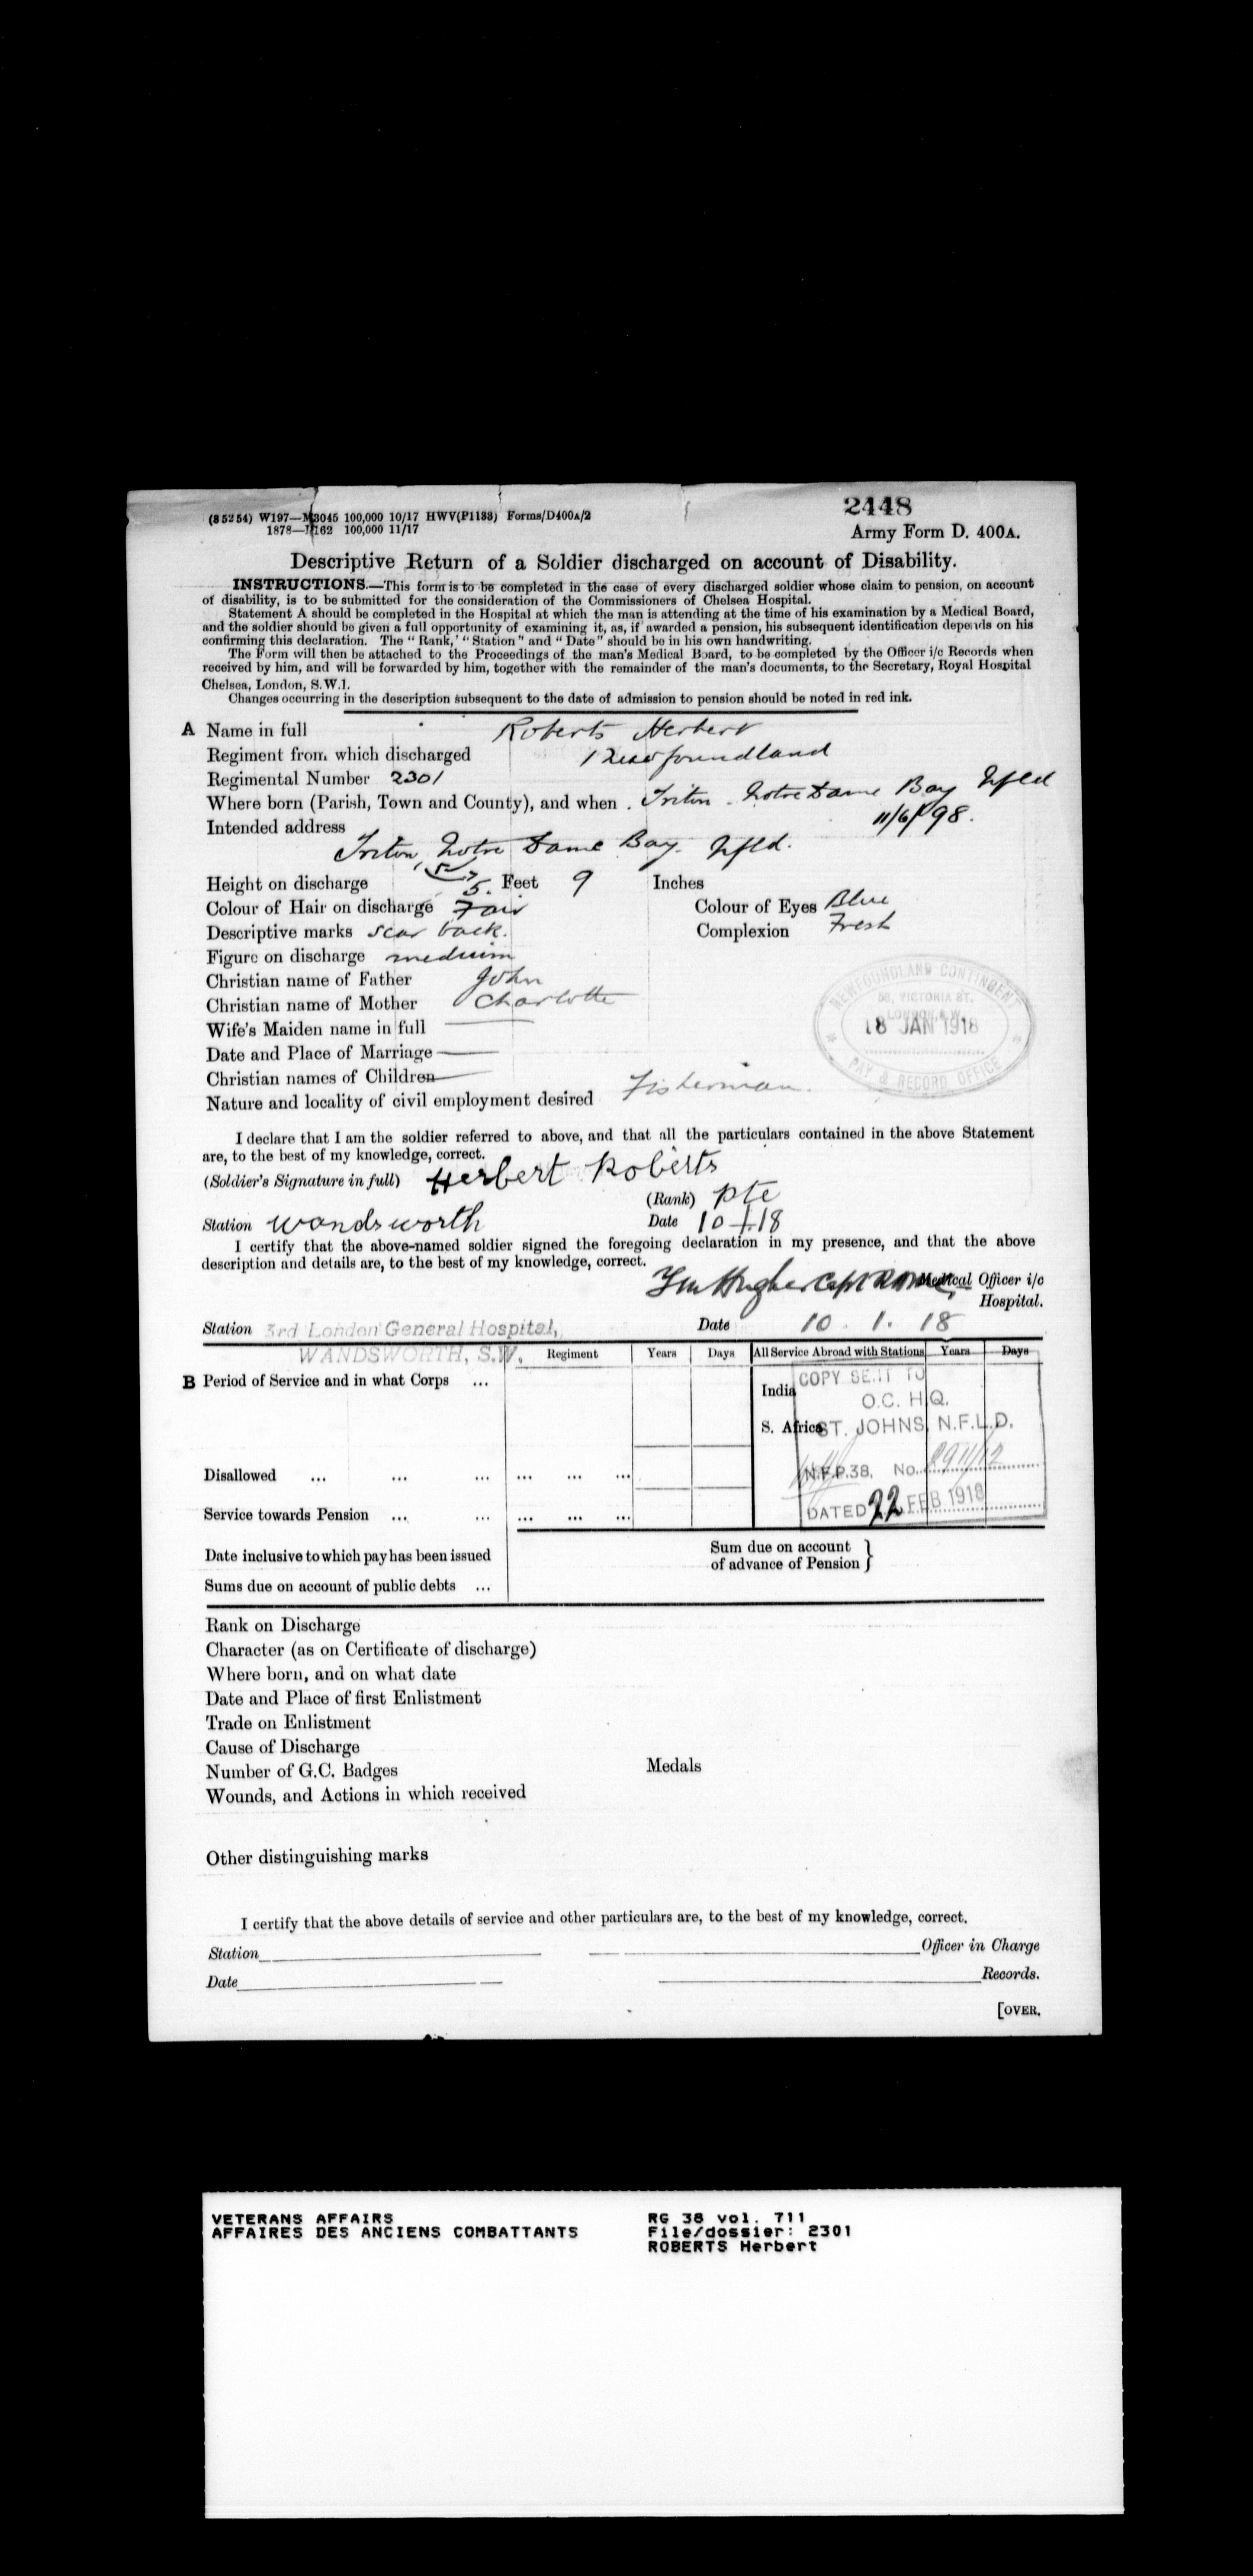 2448
(85254) W197—M3045 100,000 10/17 HWV(P1133) Forms/D400A/2
1878— 162 100,000 11/17
Army Form D. 400A.
Descriptive Return of a Soldier discharged on account of Disability.
INSTRUCTIONS.—This form is to be completed in the case of every discharged soldier whose claim to pension, on account
of disability, is to be submitted for the consideration of the Commissioners of Chelsea Hospital.
Statement A should be completed in the Hospital at which the man is attending at the time of his examination by a Medical Board,
and the soldier should be given a full opportunity of examining it, as, if awarded a pension, his subsequent identification depends on his
confirming this declaration. The "Rank,' "Station" and "Date" should be in his own handwriting.
The Form will then be attached to the Proceedings of the man's Medical Board, to be completed by the Officer i/c Records when
received by him, and will be forwarded by him, together with the remainder of the man's documents, to the Secretary, Royal Hospital
Chelsea, London, S.W.1.
Changes occurring in the description subsequent to the date of admission to pension should be noted in red ink.
A Name in full Roberts Herbert
Regiment from which discharged 1 Newfoundland
Regimental Number 2301
Where born (Parish, Town and County), and when . Triton Notre Dame Bay Nfld
11/6/98.
Intended address
Triton, Notre Dame Bay. Nfld.
Height on discharge 5. Feet 9 Inches
Colour of Hair on discharge Fair Colour of Eyes Blue
Descriptive marks scar back. Complexion Fresh
Figure on discharge medium
Christian name of Father John
Christian name of Mother Charlotte
Wife's Maiden name in full —
Date and Place of Marriage —
Christian names of Children —
Nature and locality of civil employment desired Fisherman.
NEWFOUNDLAND CONTINGENT
58, VICTORIA ST.
LONDON S.W.
18 JAN 1918
PAY & RECORD OFFICE
I declare that I am the soldier referred to above, and that all the particulars contained in the above Statement
are, to the best of my knowledge, correct.
(Soldier's Signature in full) Herbert Roberts
(Rank) Pte
Station Wandsworth Date 10 1.18
I certify that the above-named soldier signed the foregoing declaration in my presence, and that the above
description and details are, to the best of my knowledge, correct.
Hughes Capt RAMC Medical Officer i/c
Hospital.
Station 3rd London General Hospital, Date 10. 1. 18
WANDSWORTH, S.W.
Regiment Years Days All Service Abroad with Stations Years Days
B Period of Service and in what Corps ...
India
S. Africa
COPY SENT TO
O.C. H.Q.
ST. JOHNS, N.F.L.D.
N.F.P.38. No.
DATED 22 FEB 1918
Disallowed ... ... ... ... ... ...
Service towards Pension ... ... ... ... ...
Date inclusive to which pay has been issued
Sum due on account
of advance of Pension }
Sums due on account of public debts ...
Rank on Discharge
Character (as on Certificate of discharge)
Where born, and on what date
Date and Place of first Enlistment
Trade on Enlistment
Cause of Discharge
Number of G.C. Badges Medals
Wounds, and Actions in which received
Other distinguishing marks
I certify that the above details of service and other particulars are, to the best of my knowledge, correct.
Station Officer in Charge
Date Records.
[OVER.
VETERANS AFFAIRS RG 38 vol. 711
AFFAIRES DES ANCIENS COMBATTANTS File/dossier: 2301
ROBERTS Herbert